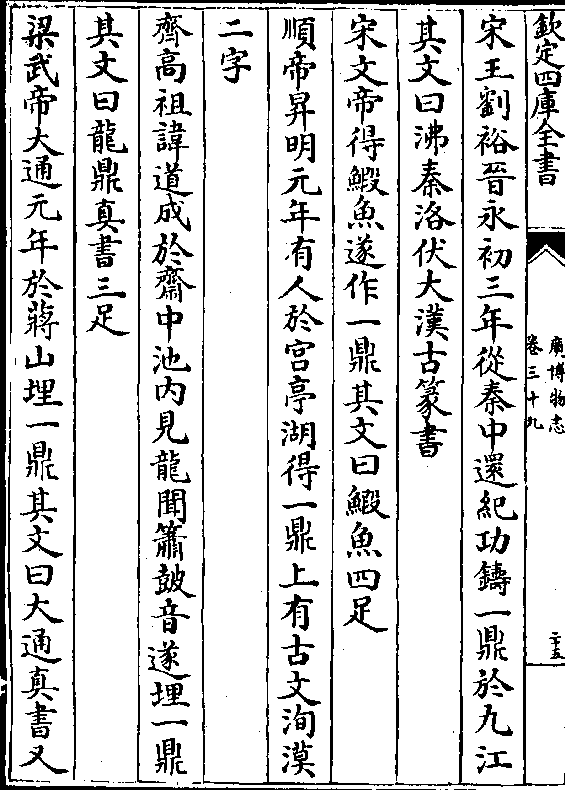 欽定四庫全書
廣博物志
卷三十九
二十五
宋王劉裕晉永初三年從秦中還紀功鑄一鼎於九江
其文曰沸秦洛伏大漢古篆書
宋文帝得鰕魚遂作一鼎其文曰鰕魚四足
順帝昇明元年有人於宫亭湖得一鼎上有古文洵漠
二字
齊高祖諱道成於齋中池内見龍聞簫鼓音遂埋一鼎
其文曰龍鼎真書三足
梁武帝大通元年於蔣山埋一鼎其文曰大通真書又